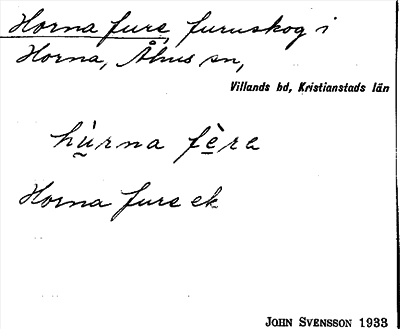 Horna fure, furuskog i
Horna, Åhus sn,
Villands hd, Kristianstads län
hu̱rna fèra
Horna fure ek
JOHN SVENSSON 1933